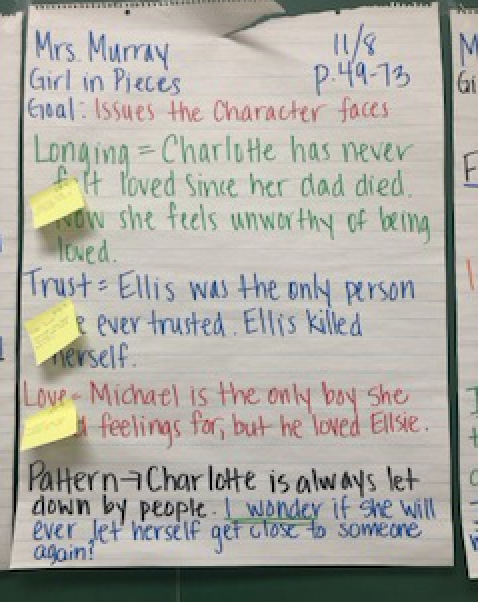 Mrs. Murray
11/8
Girl in Pieces
p. 49-73
Goal: Issues the Character faces
Longing = Charlotte has never
felt loved since her dad died.
Now she feels unworthy of being
loved.
Trust = Ellis was the only person
ever trusted. Ellis killed
herself.
Love = Michael is the only boy she
feelings for, but he loved Ellsie.
Pattern → Charlotte is always let
down by people. I wonder if she will
ever let herself get close to someone
again?
M
Gi